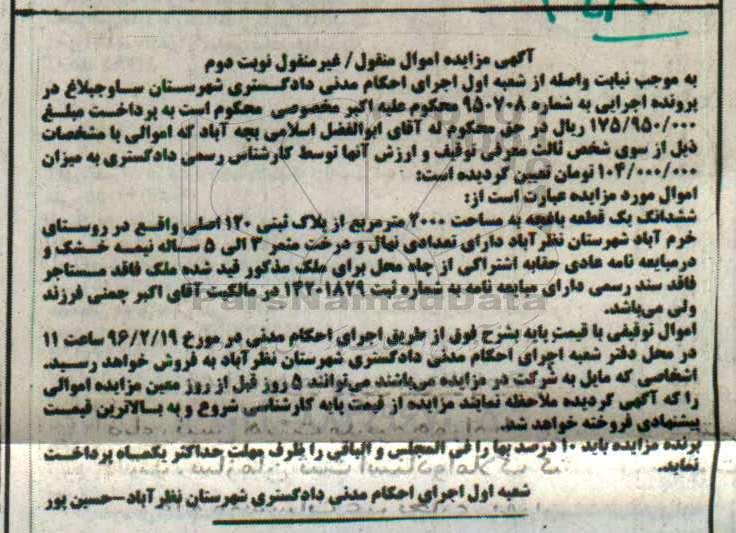 آگهی مزایده اموال منقول/ غیرمنقول نوبت دوم
به موجب نیابت واصله از شعبه اول اجرای احکام مدنی دادگستری شهرستان ساوجبلاغ در
پرونده اجرایی به شماره ۹۵۰۷۰۸ محکوم علیه اکبر مخصوصی محکوم است به پرداخت مبلغ
۱۷۵/۹۵۰/۰۰۰ ریال در حق محکوم له آقای ابوالفضل اسلامی بچه آباد که اموالی با مشخصات
ذیل از سوی شخص ثالث معرفی توقیف و ارزش آنها توسط کارشناس رسمی دادگستری به میزان
۱۰۴/۰۰۰/۰۰۰ تومان تعیین گردیده است:
اموال مورد مزایده عبارت است از:
ششدانگ یک قطعه باغچه به مساحت ۲۰۰۰ مترمربع از پلاک ثبتی ۱۲۰ اصلی واقع در روستای
خرم آباد شهرستان نظرآباد دارای تعدادی نهال و درخت مثمر ۳ الی ۵ ساله نیمه خشک و
درمبایعه نامه عادی حقابه اشتراکی از چاه محل برای ملک مذکور قید شده ملک فاقد مستاجر
فاقد سند رسمی دارای مبایعه نامه به شماره ثبت ۱۴۲۰۱۸۲۹ در مالکیت آقای اکبر چمنی فرزند
ولی می‌باشد.
اموال توقیفی با قیمت پایه بشرح فوق از طریق اجرای احکام مدنی در مورخ ۹۶/۲/۱۹ ساعت ۱۱
در محل دفتر شعبه اجرای احکام مدنی دادگستری شهرستان نظرآباد به فروش خواهد رسید.
اشخاصی که مایل به شرکت در مزایده می‌باشند می‌توانند ۵ روز قبل از روز معین مزایده اموالی
را که آگهی گردیده ملاحظه نمایند مزایده از قیمت پایه کارشناسی شروع و به بالاترین قیمت
پیشنهادی فروخته خواهد شد.
برنده مزایده باید ۱۰ درصد بها را فی المجلس و الباقی را ظرف مهلت حداکثر یکماه پرداخت
نماید.
شعبه اول اجرای احکام مدنی دادگستری شهرستان نظرآباد-حسین پور
ParsNamadData